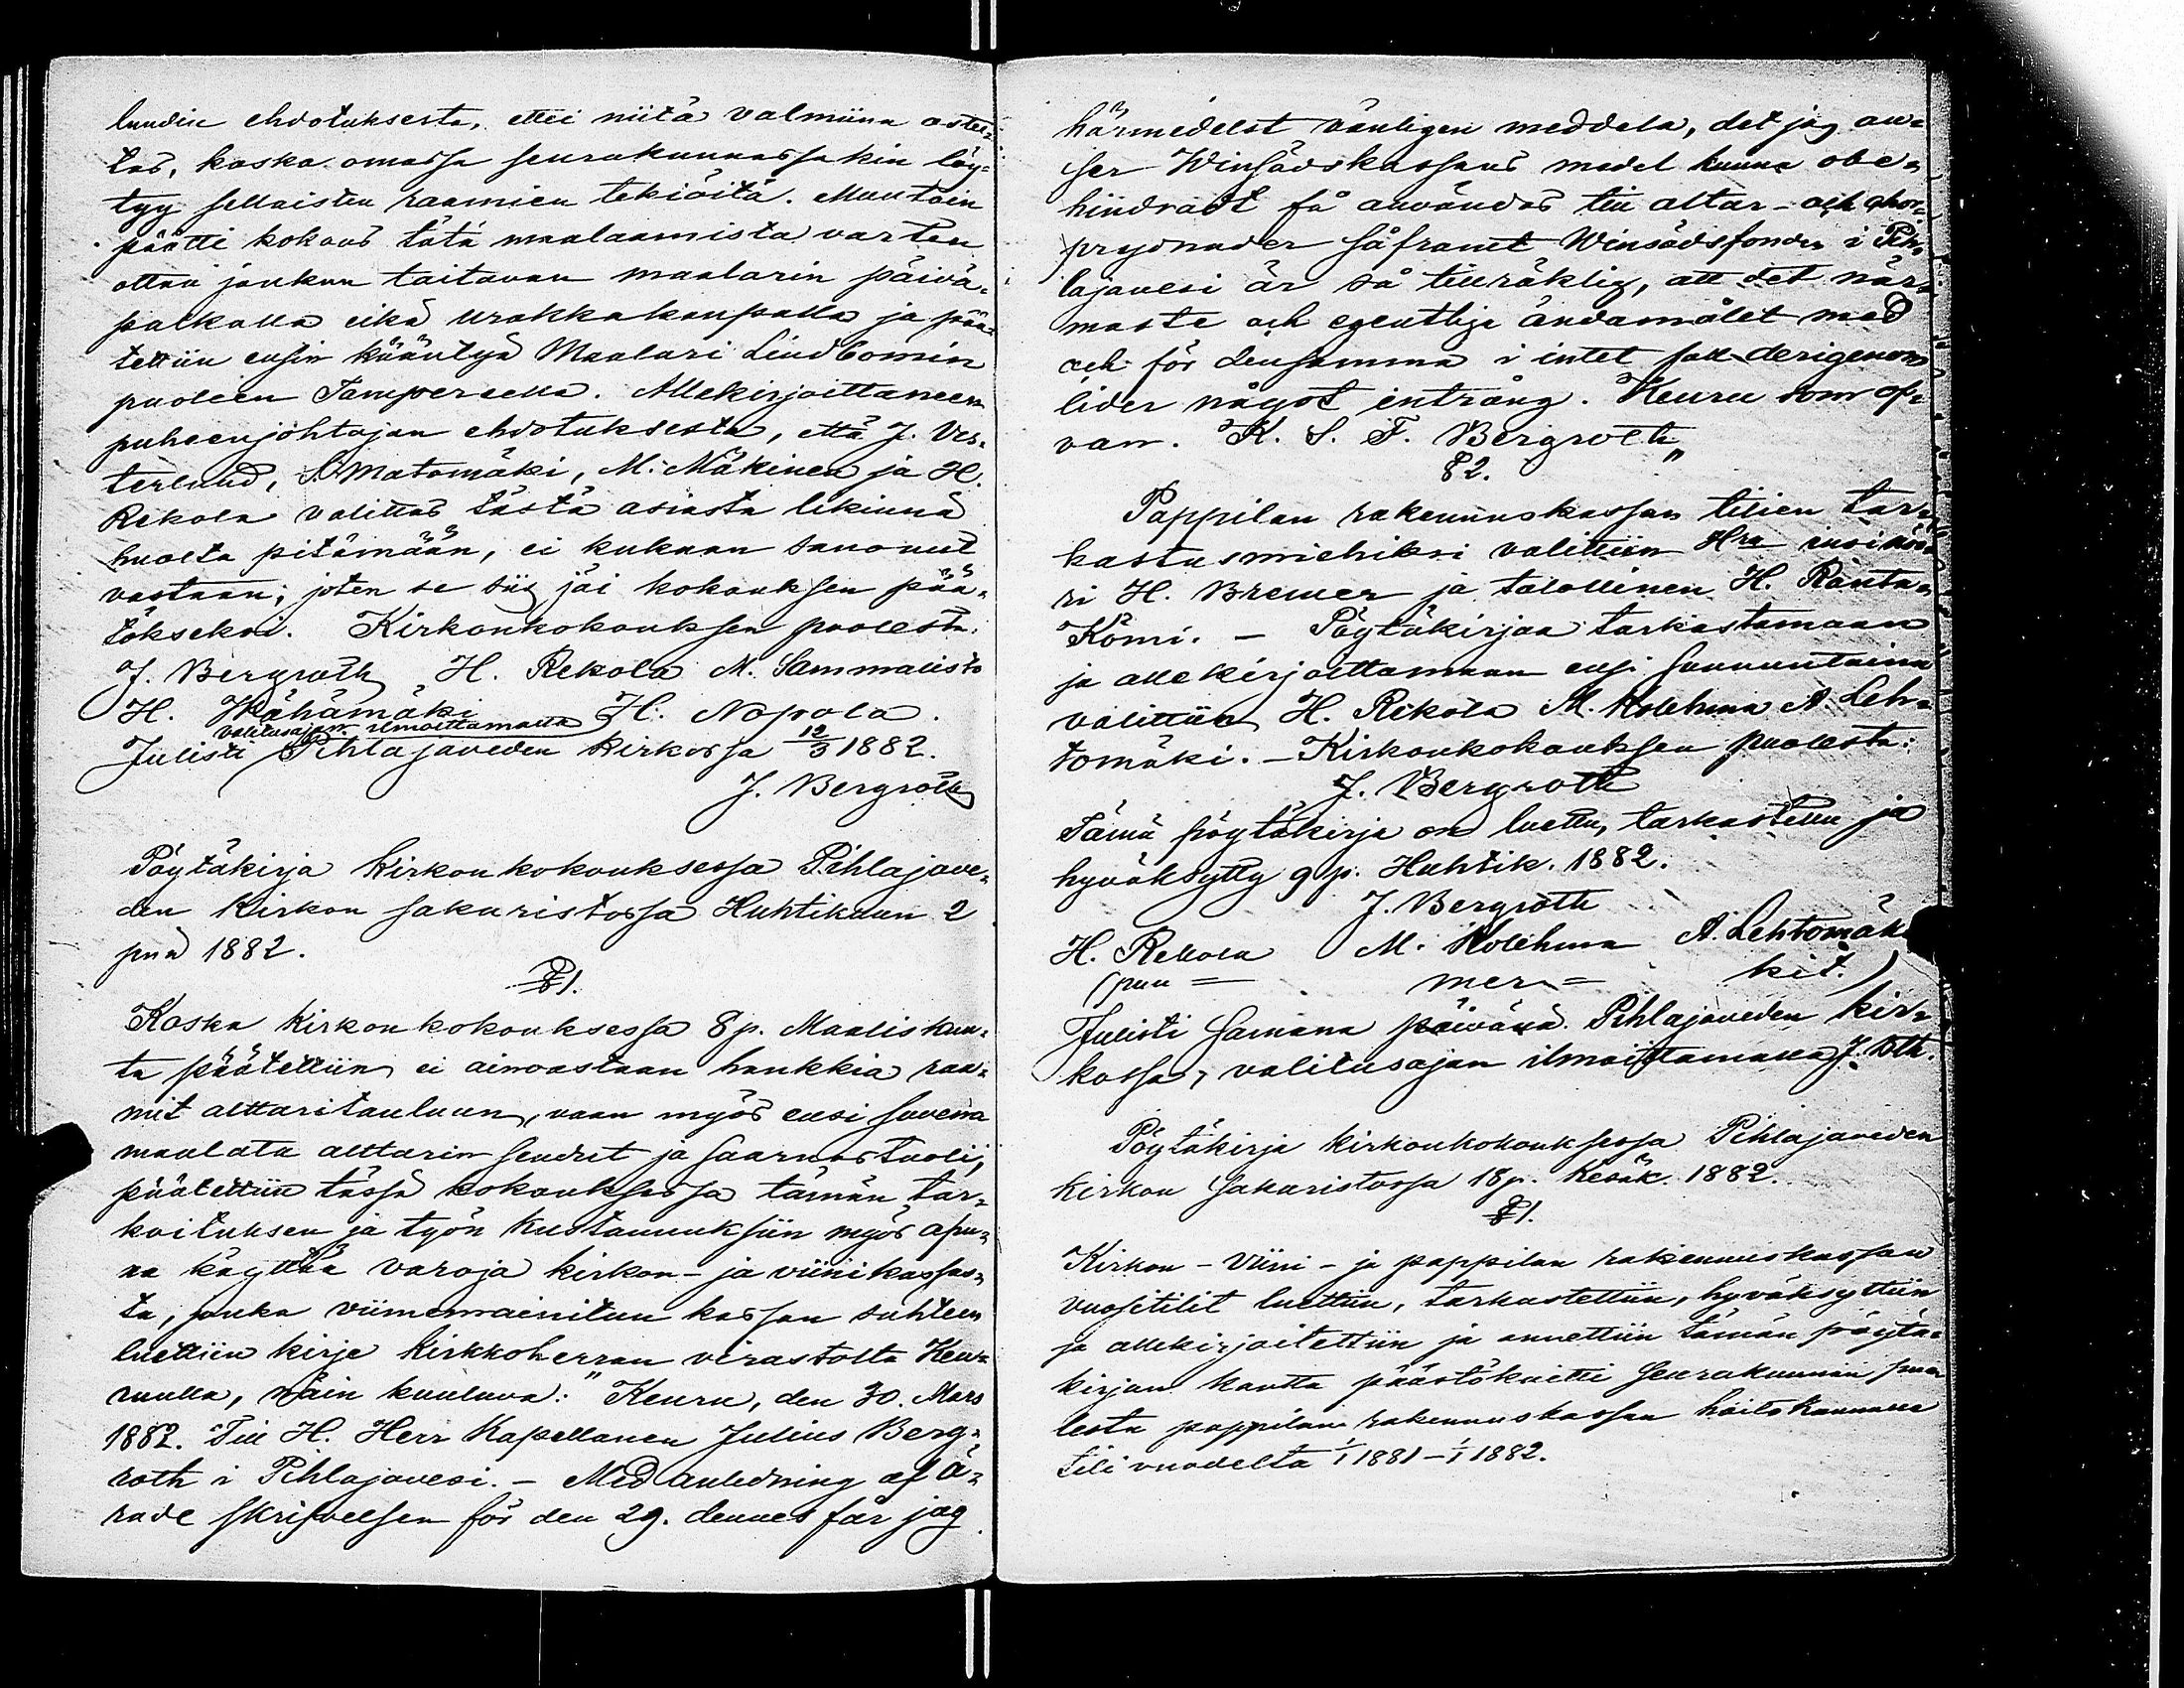 lundin ehdotuksesta, ettei niitä valmiina ostet-
tas, koska omassa seurakunnassakin löy-
tyy sellaisten raamien tekiöitä. Muutoin
päätti kokous tätä maalaamista varten
ottaa jonkun taitavan maalarin päivä-
palkalla eikä urakkakaupalla ja pää-
tettiin ensin kääntyä Maalari Lindbomin
puoleen Tampereella. Allekirjoittaneen
puheenjohtajan ehdotuksesta, että J. Ves-
terlund, S. Matomäki, M. Mäkinen ja H.
Rekola valittas tästä asiasta likinnä
huolta pitämään, ei kukaan sanonut
vastaan; joten se siis jäi kokouksen pää-
tökseksi. Kirkonkokouksen puolesta:
J. Bergroth H. Rekola M. Sammalisto
H. Wähämäki H. Nopola.
valitusajan ilmoittamalla
Julisti Pihlajaveden kirkossa 12/3 1882.
J. Bergroth
Pöytäkirja kirkonkokouksessa Pihlajave-
den kirkon sakaristossa Huhtikuun 2
pnä 1882.
§1.
Koska kirkonkokouksessa 8 p. Maaliskuu-
ta päätettiin ei ainoastaan hankkia raa-
mit alttaritauluun, vaan myös ensi suvena
maalata alttarin seudut ja saarnastuoli,
päätettiin tässä kokouksessa tämän tar-
koituksen ja työn kustannuksiin myös apu-
na käyttää varoja kirkon- ja viinikassas-
ta, jonka viimemainitun kassan suhteen
luettiin kirje kirkkoherran virastolta Keu-
ruulla, näin kuuluva: "Keuru, den 30. Mars
1882. Till H. Herr Kapellanen Julius Berg-
roth i Pihlajavesi. - Med anledning af ä-
rade skrifvelsen för den 29. dennes får jag
härmedelst vänligen meddela, det jag an-
ser Winsädskassans medel kunna obe-
hindradt få användas till altar- och chor-
prydnader såframt Winsädsfonden i Pih-
lajavesi är så tillräklig, att det när-
maste och egentliga ändamålet med
och för densamma i intet fall derigenom
lider något intrång. Keuru som of-
van. K. S. F. Bergroth"
§2.
Pappilan rakennuskassan tilien tar-
kastusmiehiksi valittiin Hra insinöö-
ri H. Bremer ja talollinen H. Ranta-
Kömi. - Pöytäkirjaa tarkastamaan
ja allekirjoittamaan ensi sunnuntaina
valittiin H. Rekola M. Kolehma A. Leh-
tomäki. - Kirkonkokouksen puolesta:
J. Bergroth
Tämä pöytäkirja on luettu, tarkastettu ja
hyväksytty 9 p. Huhtik. 1882.
J. Bergroth
H. Rekola M. Kolehma A. Lehtomäk
(puu = mer = kit.)
Julisti samana päivänä Pihlajaveden kir-
kossa, valitusajan ilmoittamalla J.
Pöytäkirja kirkonkokouksessa Pihlajaveden
kirkon sakaristossa 18 p. Kesäk. 1882.
§1.
Kirkon- Viini- ja pappilan rakennuskassan
vuositilit luettiin, tarkastettiin, hyväksyttiin
ja allekirjoitettiin ja annettiin tämän pöytä-
kirjan kautta päästökuitti seurakunnan puo-
lesta pappilan rakennuskassan hoitokunnalle
tili vuodelta 1/1 1881 - 1/1 1882.